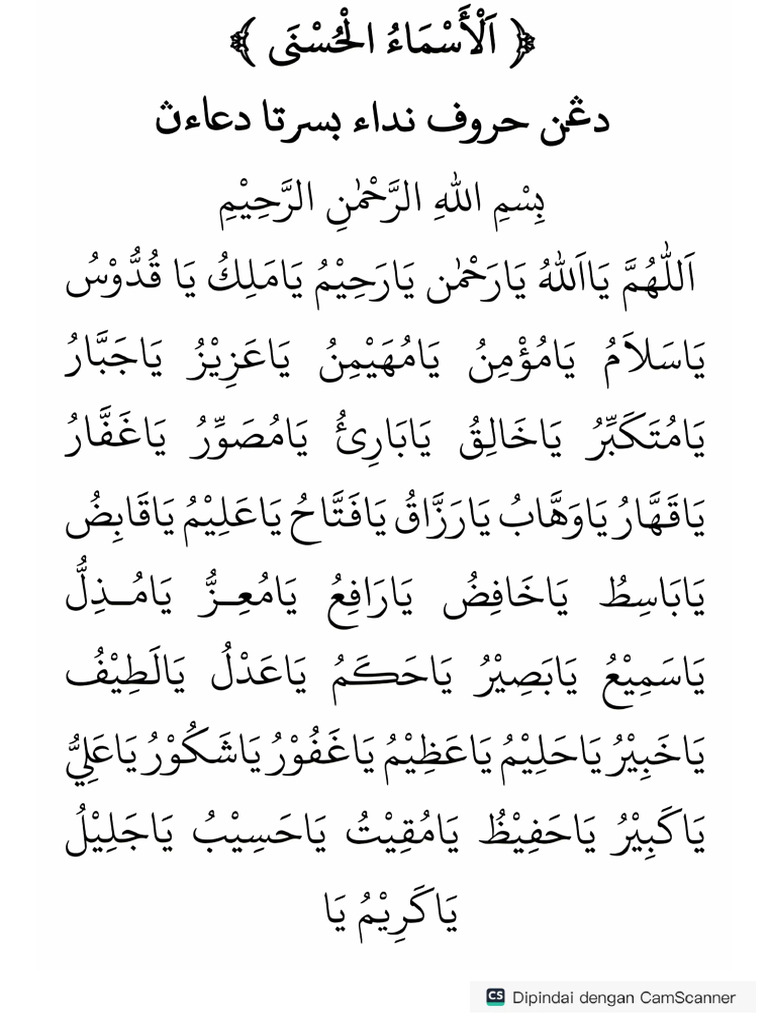 ﴿ اَلْأَسْمَاءُ الْحُسْنَى ﴾
دڠن حروف نداء بسرتا دعاءڽ
بِسْمِ اللهِ الرَّحْمٰنِ الرَّحِيْمِ
اَللّٰهُمَّ يَااَللهُ يَارَحْمٰن يَارَحِيْمُ يَامَلِكُ يَا قُدُّوْسُ
يَاسَلَامُ يَامُؤْمِنُ يَامُهَيْمِنُ يَاعَزِيْزُ يَاجَبَّارُ
يَامُتَكَبِّرُ يَاخَالِقُ يَابَارِئُ يَامُصَوِّرُ يَاغَفَّارُ
يَاقَهَّارُ يَاوَهَّابُ يَارَزَّاقُ يَافَتَّاحُ يَاعَلِيْمُ يَاقَابِضُ
يَابَاسِطُ يَاخَافِضُ يَارَافِعُ يَامُعِـزُّ يَامُـذِلُّ
يَاسَمِيْعُ يَابَصِيْرُ يَاحَكَمُ يَاعَدْلُ يَالَطِيْفُ
يَاخَبِيْرُ يَاحَلِيْمُ يَاعَظِيْمُ يَاغَفُوْرُ يَاشَكُوْرُ يَاعَلِيُّ
يَاكَبِيْرُ يَاحَفِيْظُ يَامُقِيْتُ يَاحَسِيْبُ يَاجَلِيْلُ
يَاكَرِيْمُ يَا
CS Dipindai dengan CamScanner